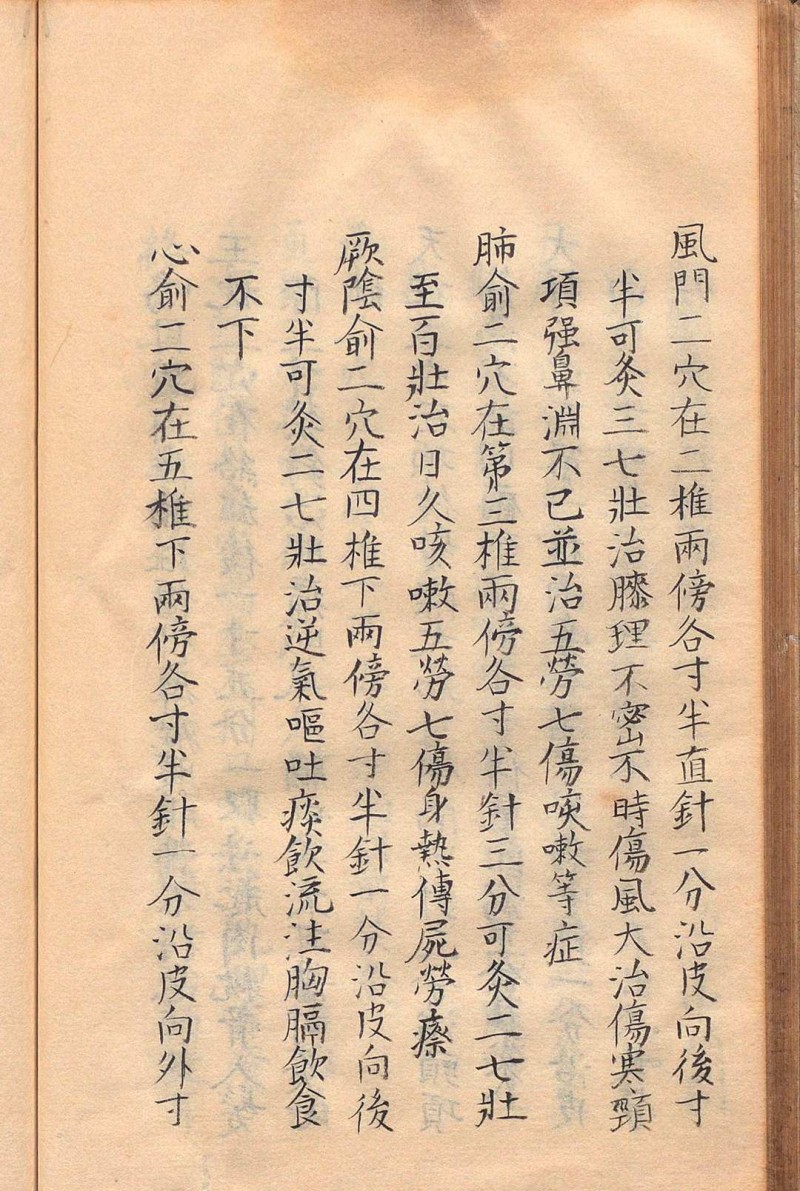 風門二穴在二椎兩傍各寸半直針一分沿皮向後寸
半可灸三七壯治膝理不密不時傷風大治傷寒頸
項强鼻淵不已並治五勞七傷咳嗽等症
肺俞二穴在第三椎兩傍各寸半針三分可灸二七壯
至百壯治日久咳嗽五勞七傷身熱傳屍勞瘵
厥陰俞二穴在四椎下兩傍各寸半針一分沿皮向後
寸半可灸二七壯治逆氣嘔吐痰飲流注胸膈飲食
不下
心俞二穴在五椎下兩傍各寸半針一分沿皮向外寸